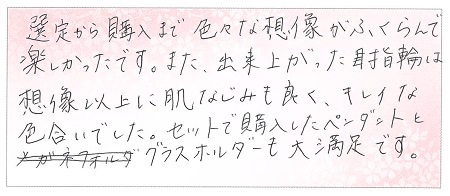 選定から購入まで色々な想像がふくらんで
楽しかったです。また、出来上がった指輪は
想像以上に肌なじみも良く、キレイな
色合いでした。セットで購入したペンダントと
メガネフォルダグラスホルダーも大満足です。